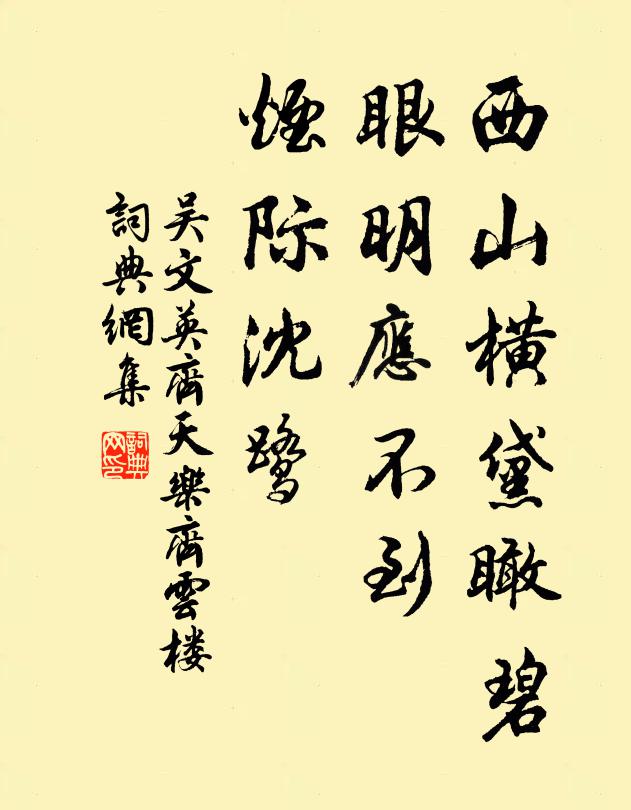 西山橫黛瞰碧
眼明應不到
煙际沈鹭
吴文英齊天樂齊雲楼
詞典網集
詞典网印